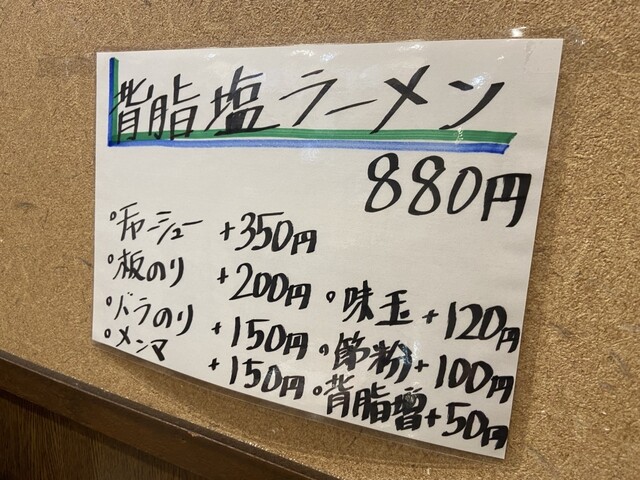 背脂塩ラーメン
880円
°チャーシュー +350円
°板のり +200円
°バラのり +150円
°メンマ +150円
°味玉 +120円
°節粉 +100円
°背脂増 +50円